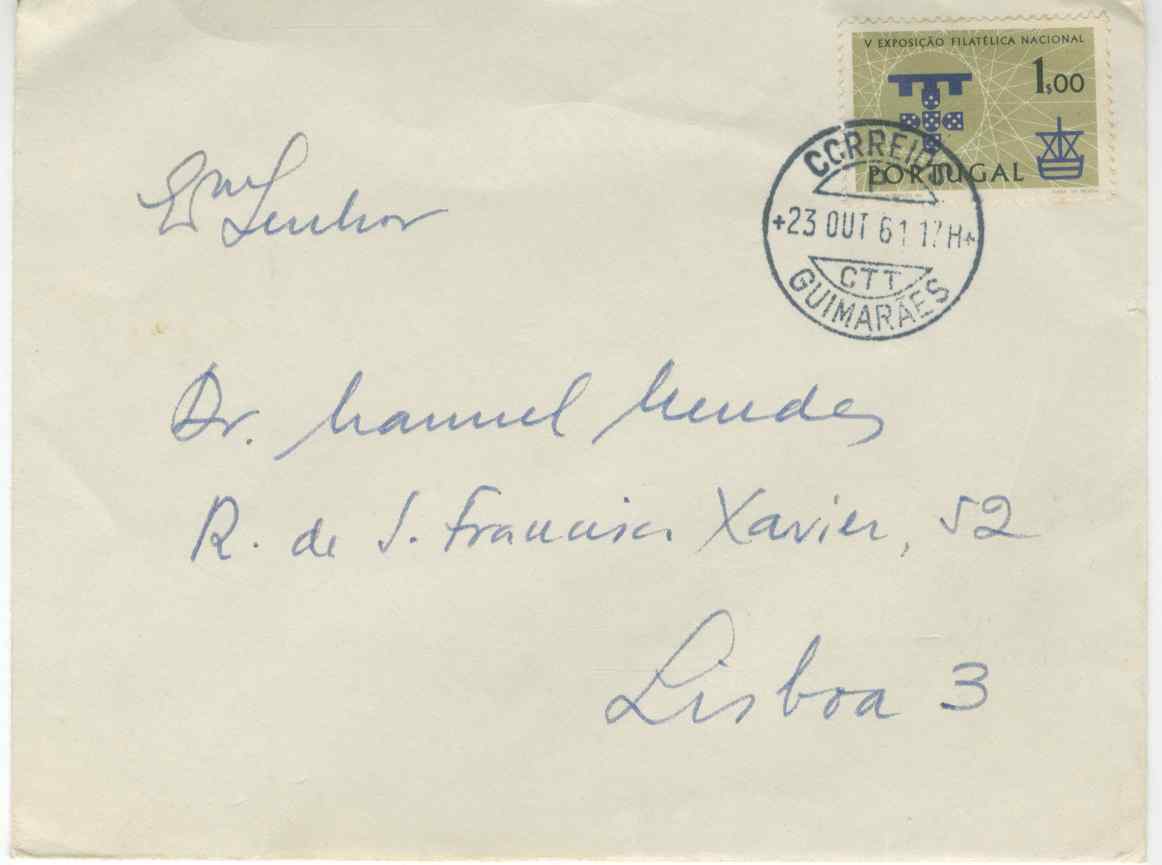 V EXPOSIÇÃO FILATÉLICA NACIONAL
1$00
PORTUGAL
CORREIOS
+23 OUT 61 17H+
CTT
GUIMARÃES
Exmo
Senhor
Dr. Manuel Mendes
R. de S. Francisco Xavier, 52
Lisboa 3